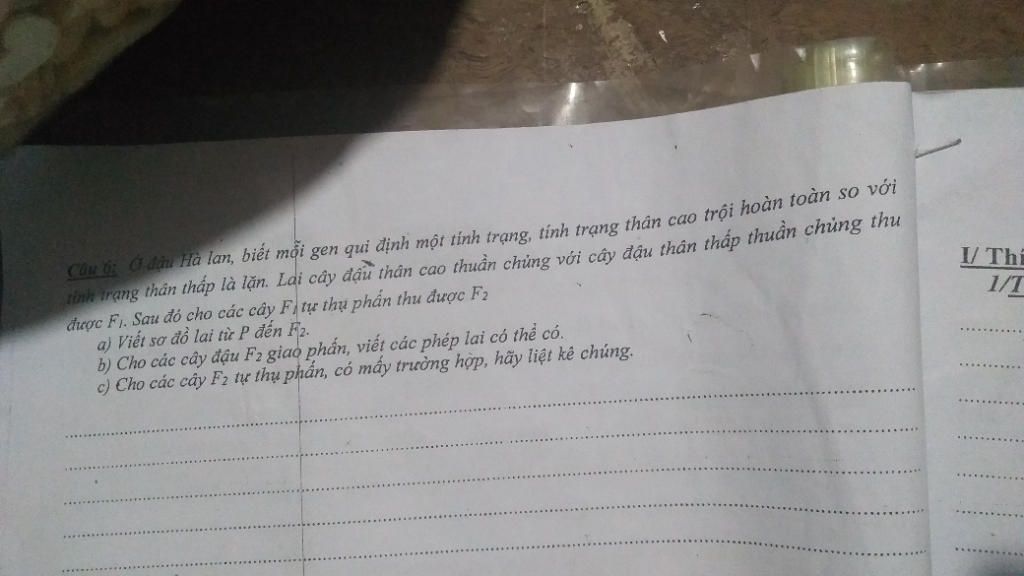 Câu 6: Ở đậu Hà lan, biết mỗi gen qui định một tính trạng, tính trạng thân cao trội hoàn toàn so với
tính trạng thân thấp là lặn. Lai cây đậu thân cao thuần chủng với cây đậu thân thấp thuần chủng thu
được F1. Sau đó cho các cây F1 tự thụ phấn thu được F2
a) Viết sơ đồ lai từ P đến F2.
b) Cho các cây đậu F2 giao phấn, viết các phép lai có thể có.
c) Cho các cây F2 tự thụ phấn, có mấy trường hợp, hãy liệt kê chúng.
I/ Thí
1/T